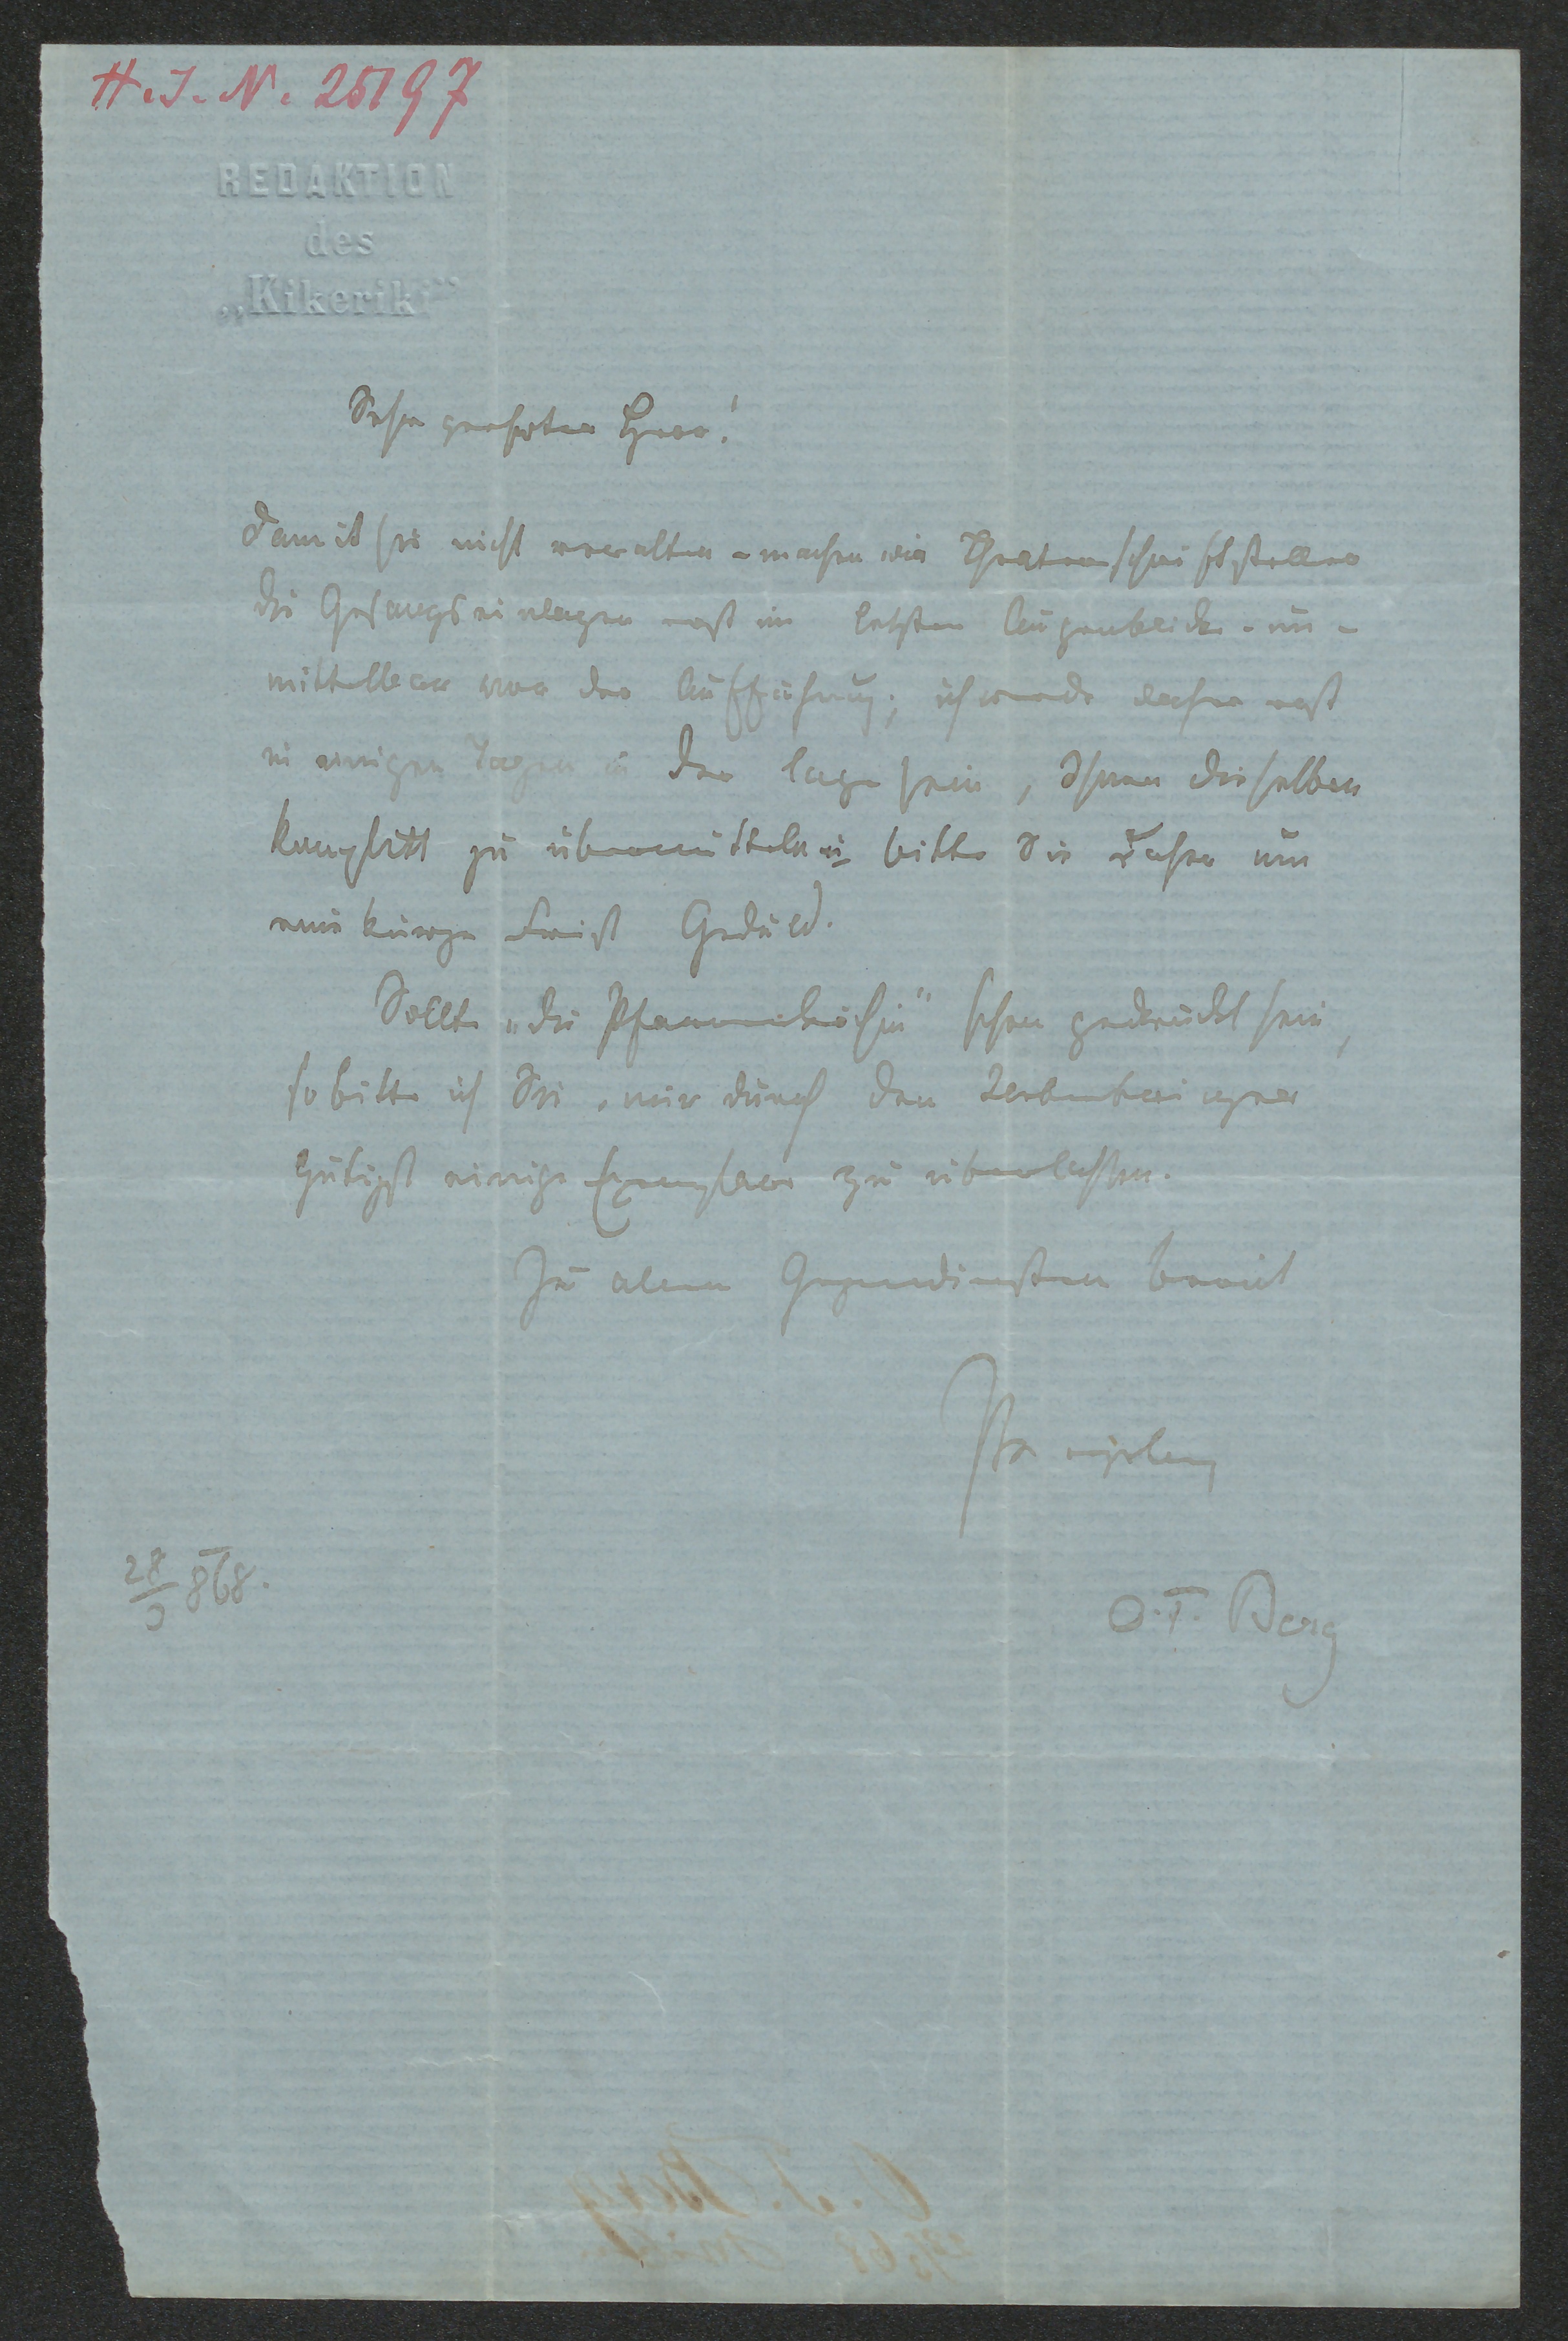 H. I. N. 25197
REDAKTION
des
„Kikeriki“
Sehr geehrter Herr!
Damit sie nicht veralten - machen wir Theaterschriftsteller
die Gesangseinlagen erst im letzten Augenblicke - un-
mittelbar vor der Aufführung; ich werde daher erst
in einigen Tagen in der Lage sein, Ihnen dieselben
komplett zu übermitteln u bitte Sie daher um
eine kurze Frist Geduld.
Sollte „die Pfarrersköchin“ schon gedruckt sein,
so bitte ich Sie, mir durch den Überbringer
gütigst einige Exemplare zu überlassen.
Zu allen Gegendiensten bereit
O. F. Berg
28 868.